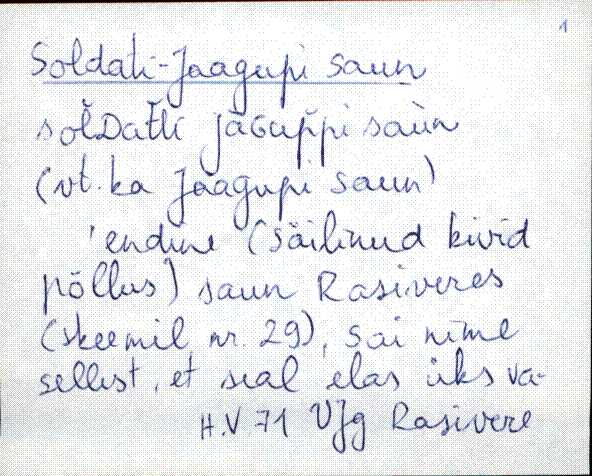 1
Soldati-Jaagupi saun
solDatti jāɢuppi saùn
(vt. ka Jaagupi saun)
'endine (säilinud kivid
põllus) saun Rasiveres
(skeemil nr. 29), sai nime
sellest, et seal elas üks va-
H.V 71 VJg Rasivere